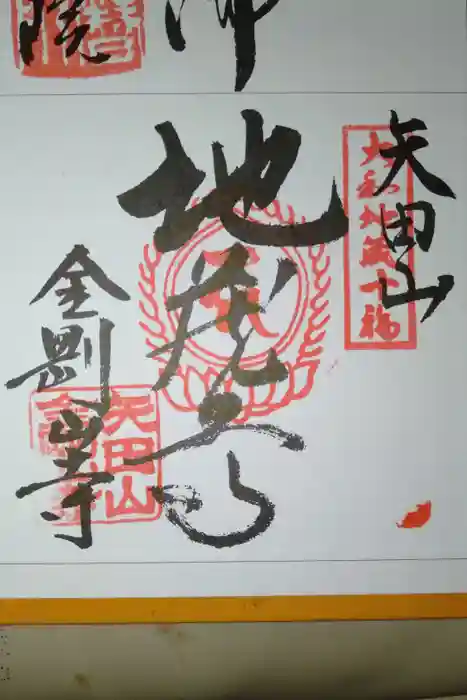 院
矢田山
大和地蔵十福
地蔵尊
金剛山寺
矢田山